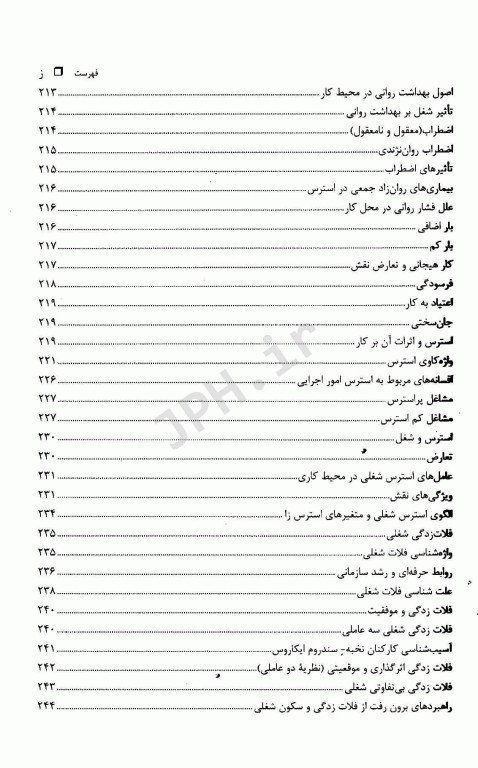 فهرست ❒ ز
اصول بهداشت روانی در محیط کار ۲۱۳
تأثیر شغل بر بهداشت روانی ۲۱۴
اضطراب(معقول و نامعقول) ۲۱۴
اضطراب روان‌نژندی ۲۱۵
تأثیرهای اضطراب ۲۱۵
بیماری‌های روان‌زاد جمعی در استرس ۲۱۶
علل فشار روانی در محل کار ۲۱۶
بار اضافی ۲۱۶
بار کم ۲۱۷
کار هیجانی و تعارض نقش ۲۱۷
فرسودگی ۲۱۸
اعتیاد به کار ۲۱۹
جان‌سختی ۲۱۹
استرس و اثرات آن بر کار ۲۱۹
واژه‌کاوی استرس ۲۲۱
افسانه‌های مربوط به استرس امور اجرایی ۲۲۶
مشاغل پراسترس ۲۲۷
مشاغل کم استرس ۲۲۷
استرس و شغل ۲۳۰
تعارض ۲۳۰
عامل‌های استرس شغلی در محیط کاری ۲۳۱
ویژگی‌های نقش ۲۳۱
الگوی استرس شغلی و متغیرهای استرس زا ۲۳۴
فلات‌زدگی شغلی ۲۳۵
واژه‌شناسی فلات شغلی ۲۳۵
روابط حرفه‌ای و رشد سازمانی ۲۳۶
علت شناسی فلات شغلی ۲۳۸
فلات زدگی و موفقیت ۲۴۰
فلات زدگی شغلی سه عاملی ۲۴۰
آسیب‌شناسی کارکنان نخبه- سندروم ایکاروس ۲۴۱
فلات زدگی اثرگذاری و موقعیتی (نظریهٔ دو عاملی) ۲۴۲
فلات زدگی بی‌تفاوتی شغلی ۲۴۳
راهبردهای برون رفت از فلات زدگی و سکون شغلی ۲۴۴
JPH.ir